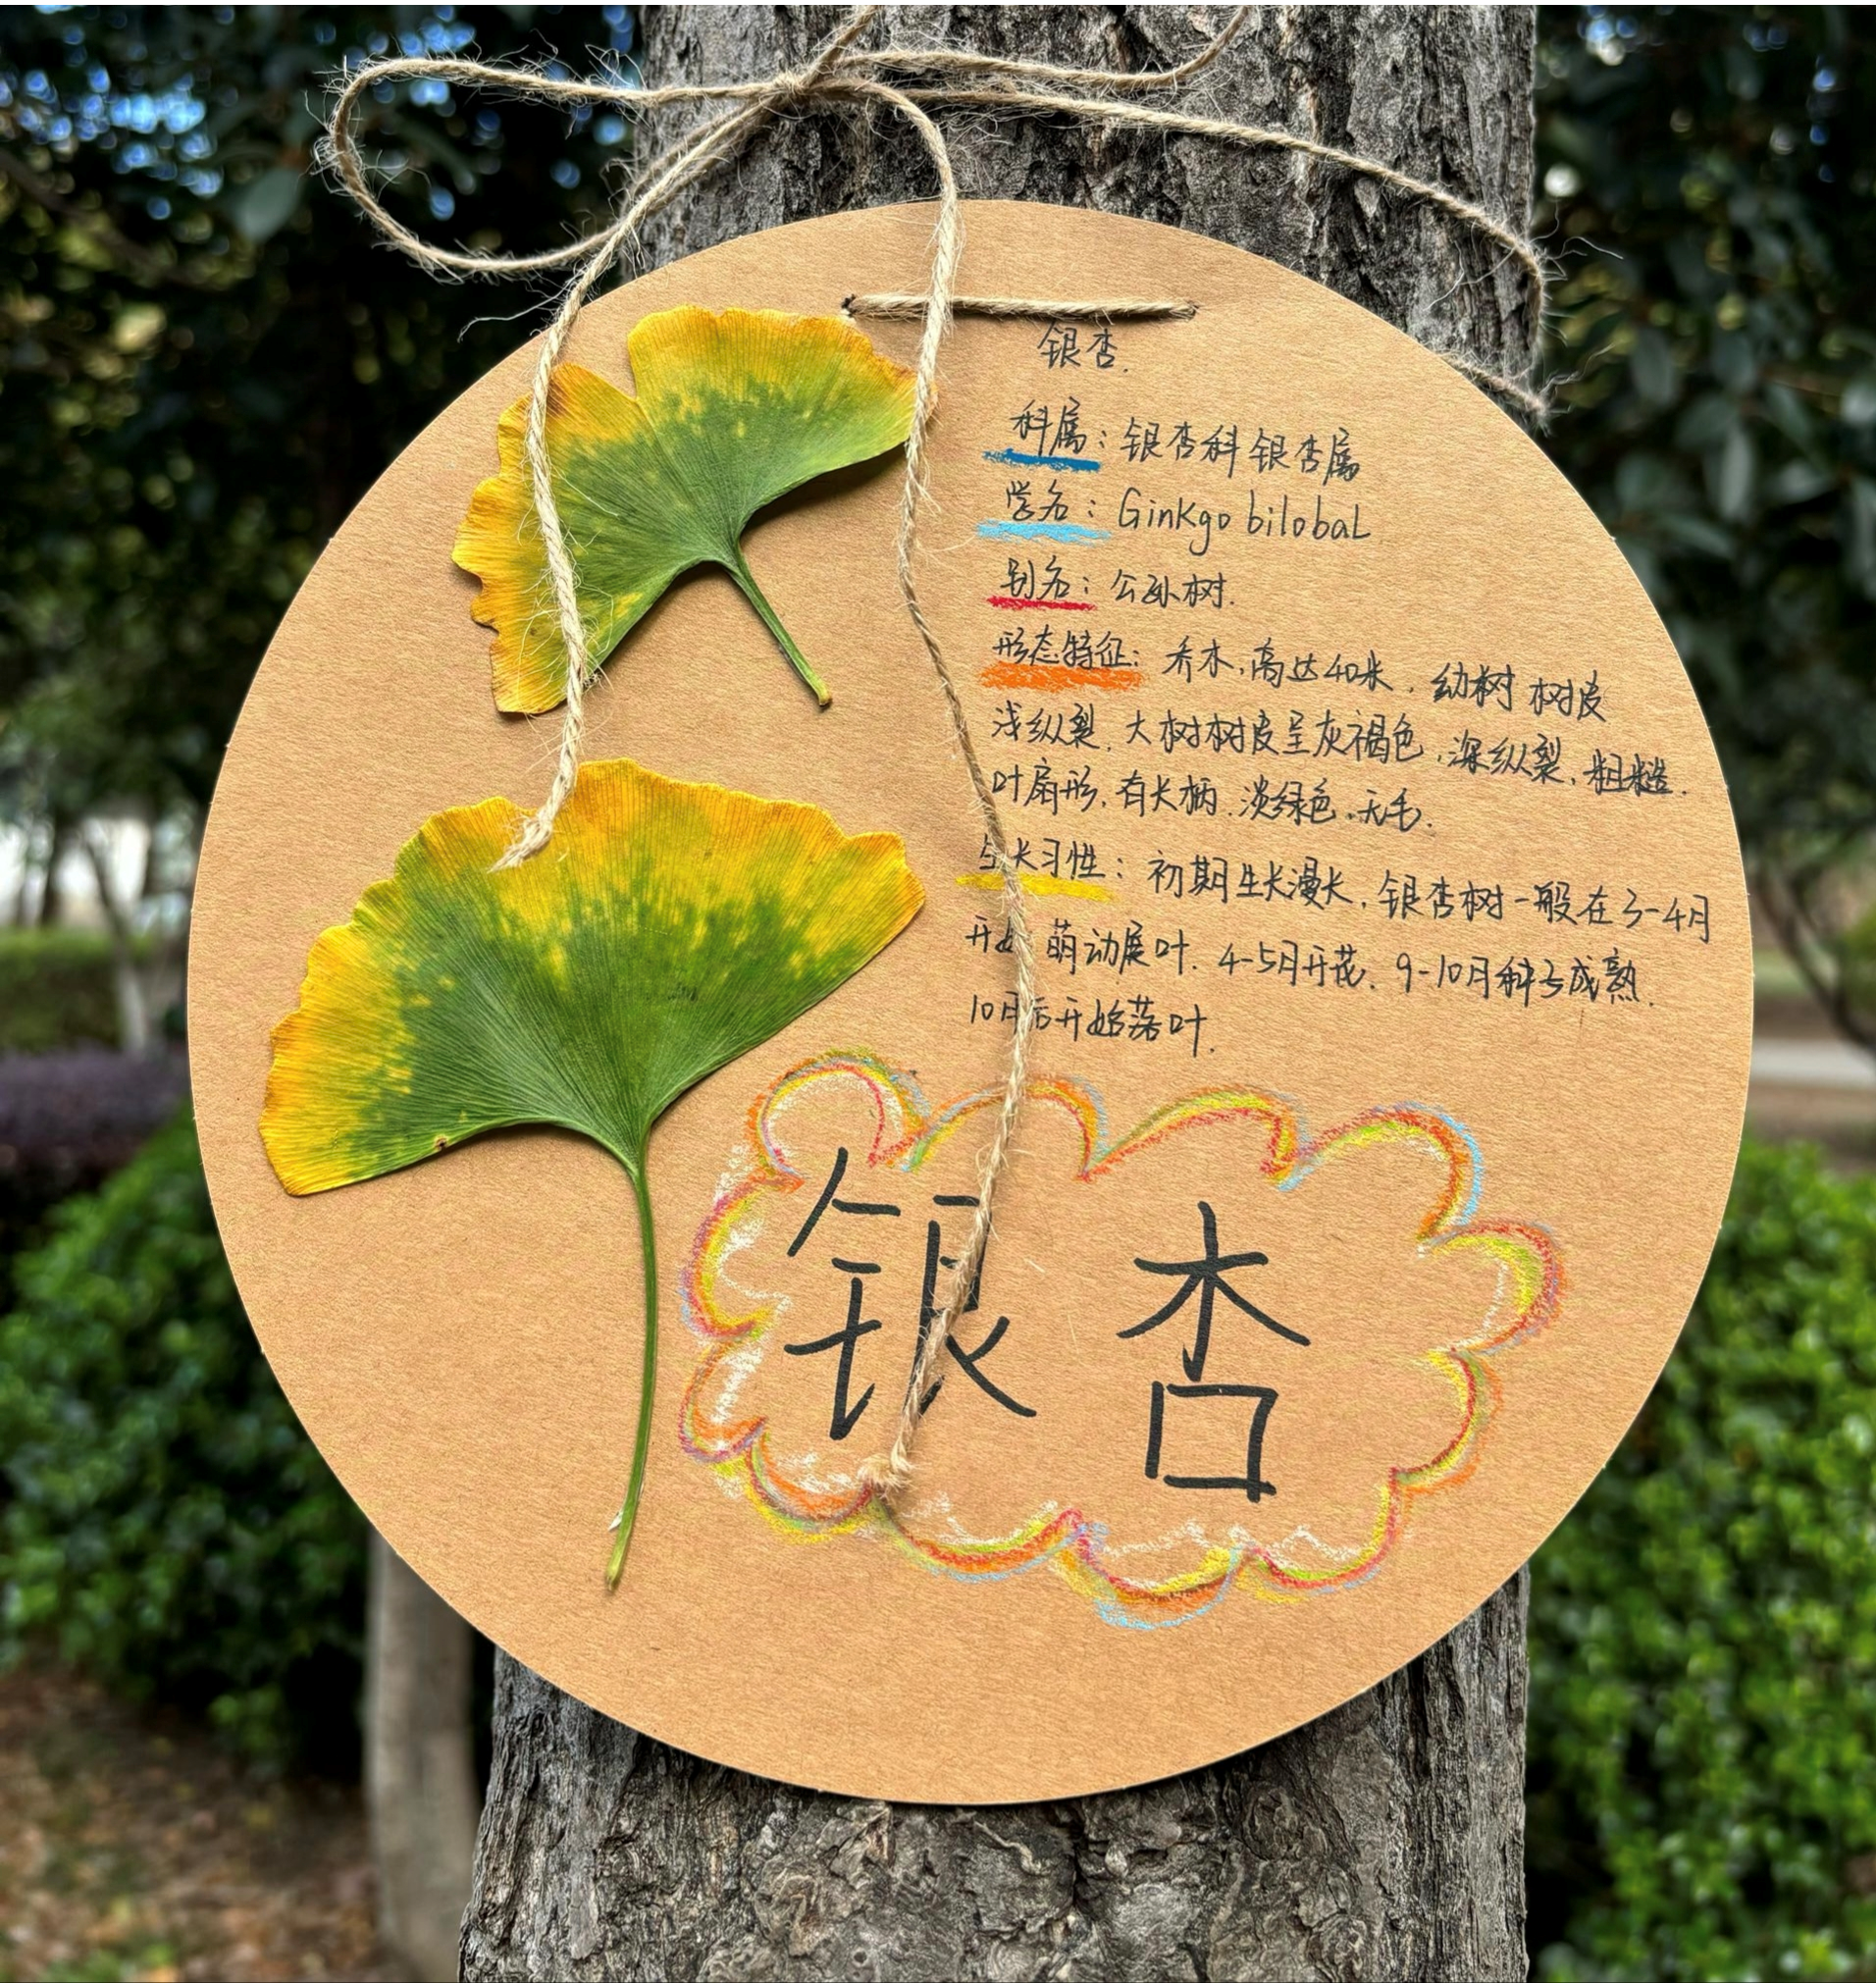 银杏.
科属：银杏科银杏属
学名：Ginkgo bilobaL
别名：公孙树.
形态特征：乔木,高达40米,幼树树皮
浅纵裂,大树树皮呈灰褐色,深纵裂,粗糙.
叶扇形,有长柄.淡绿色.无毛.
生长习性：初期生长漫长,银杏树一般在3-4月
开始萌动展叶.4-5月开花.9-10月种子成熟.
10月后开始落叶.
银杏